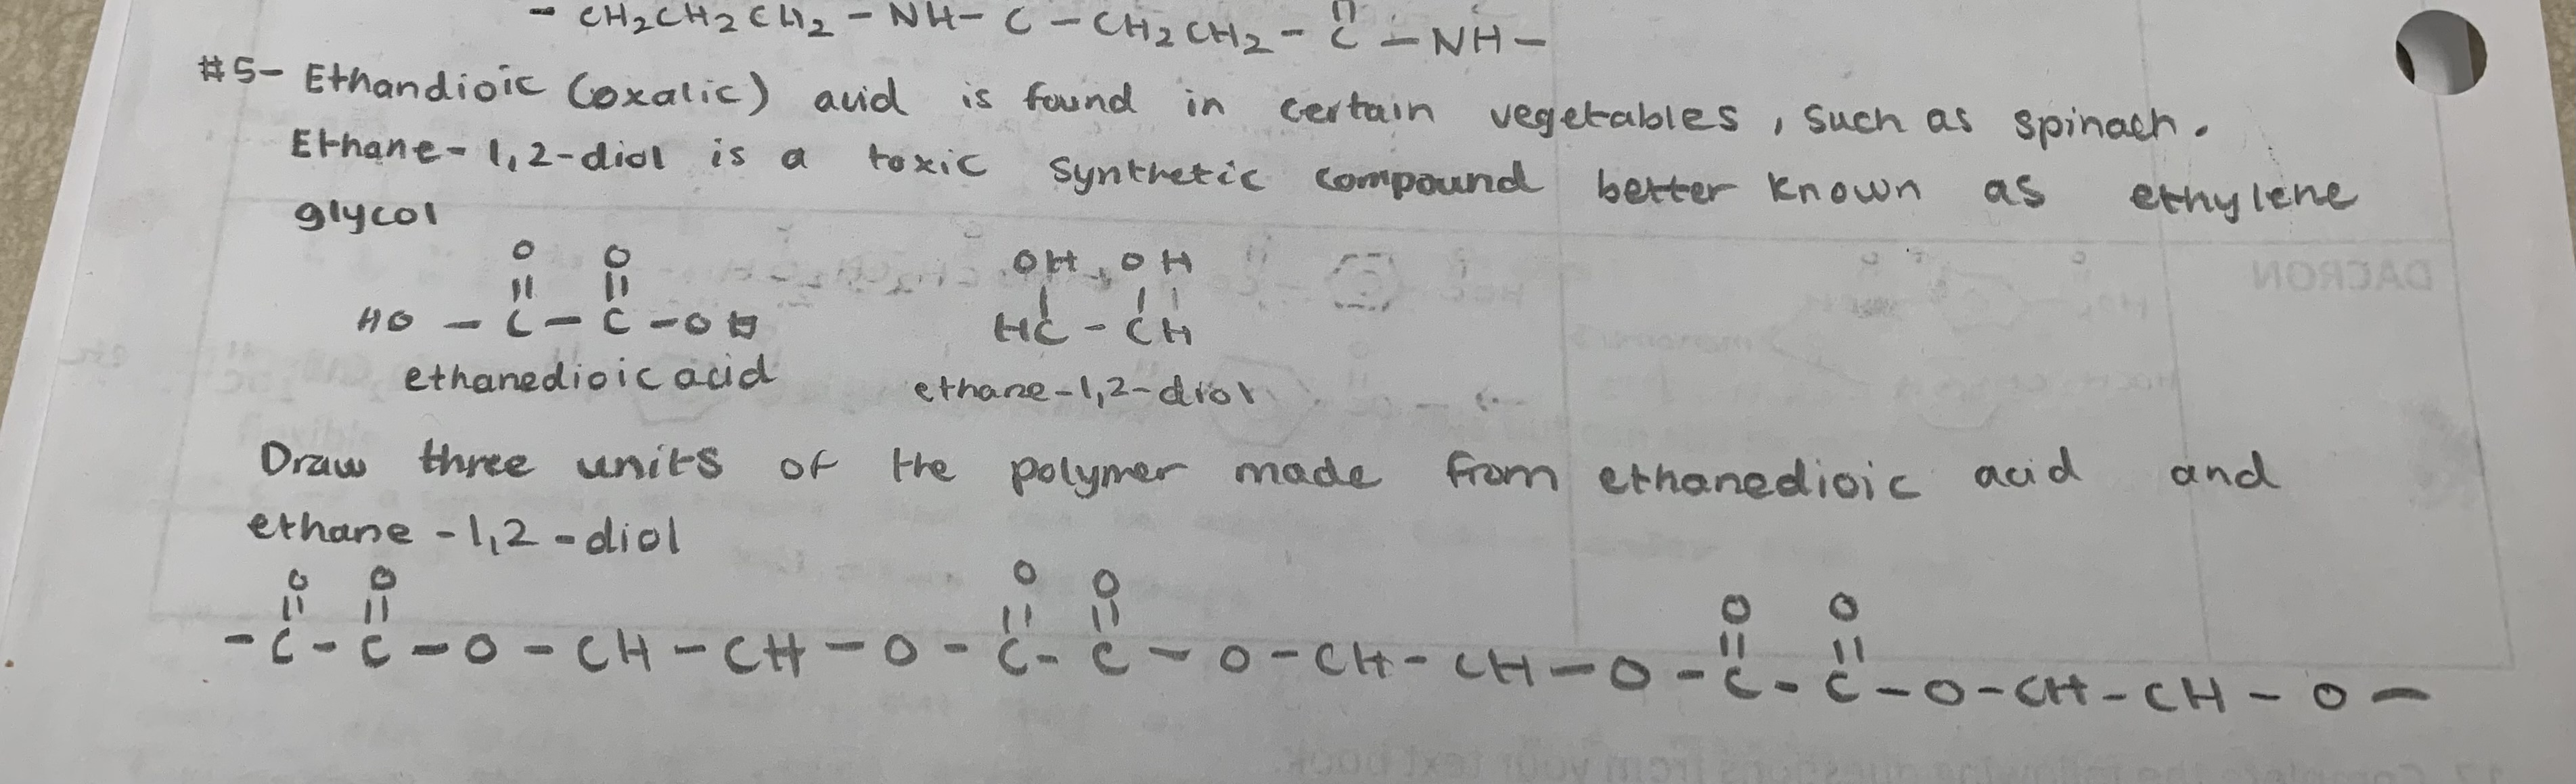 - CH2CH2CH2 - NH - C - CH2CH2 - C - NH -
#5- Ethandioic (oxalic) acid is found in certain vegetables, such as spinach.
Ethane-1,2-diol is a toxic synthetic compound better known as ethylene
glycol
O O OH OH
|| || | |
HO - C - C - OH HC - CH
ethanedioic acid ethane-1,2-diol
Draw three units of the polymer made from ethanedioic acid and
ethane-1,2-diol
O O O O O O
|| || || || || ||
- C - C - O - CH - CH - O - C - C - O - CH - CH - O - C - C - O - CH - CH - O -